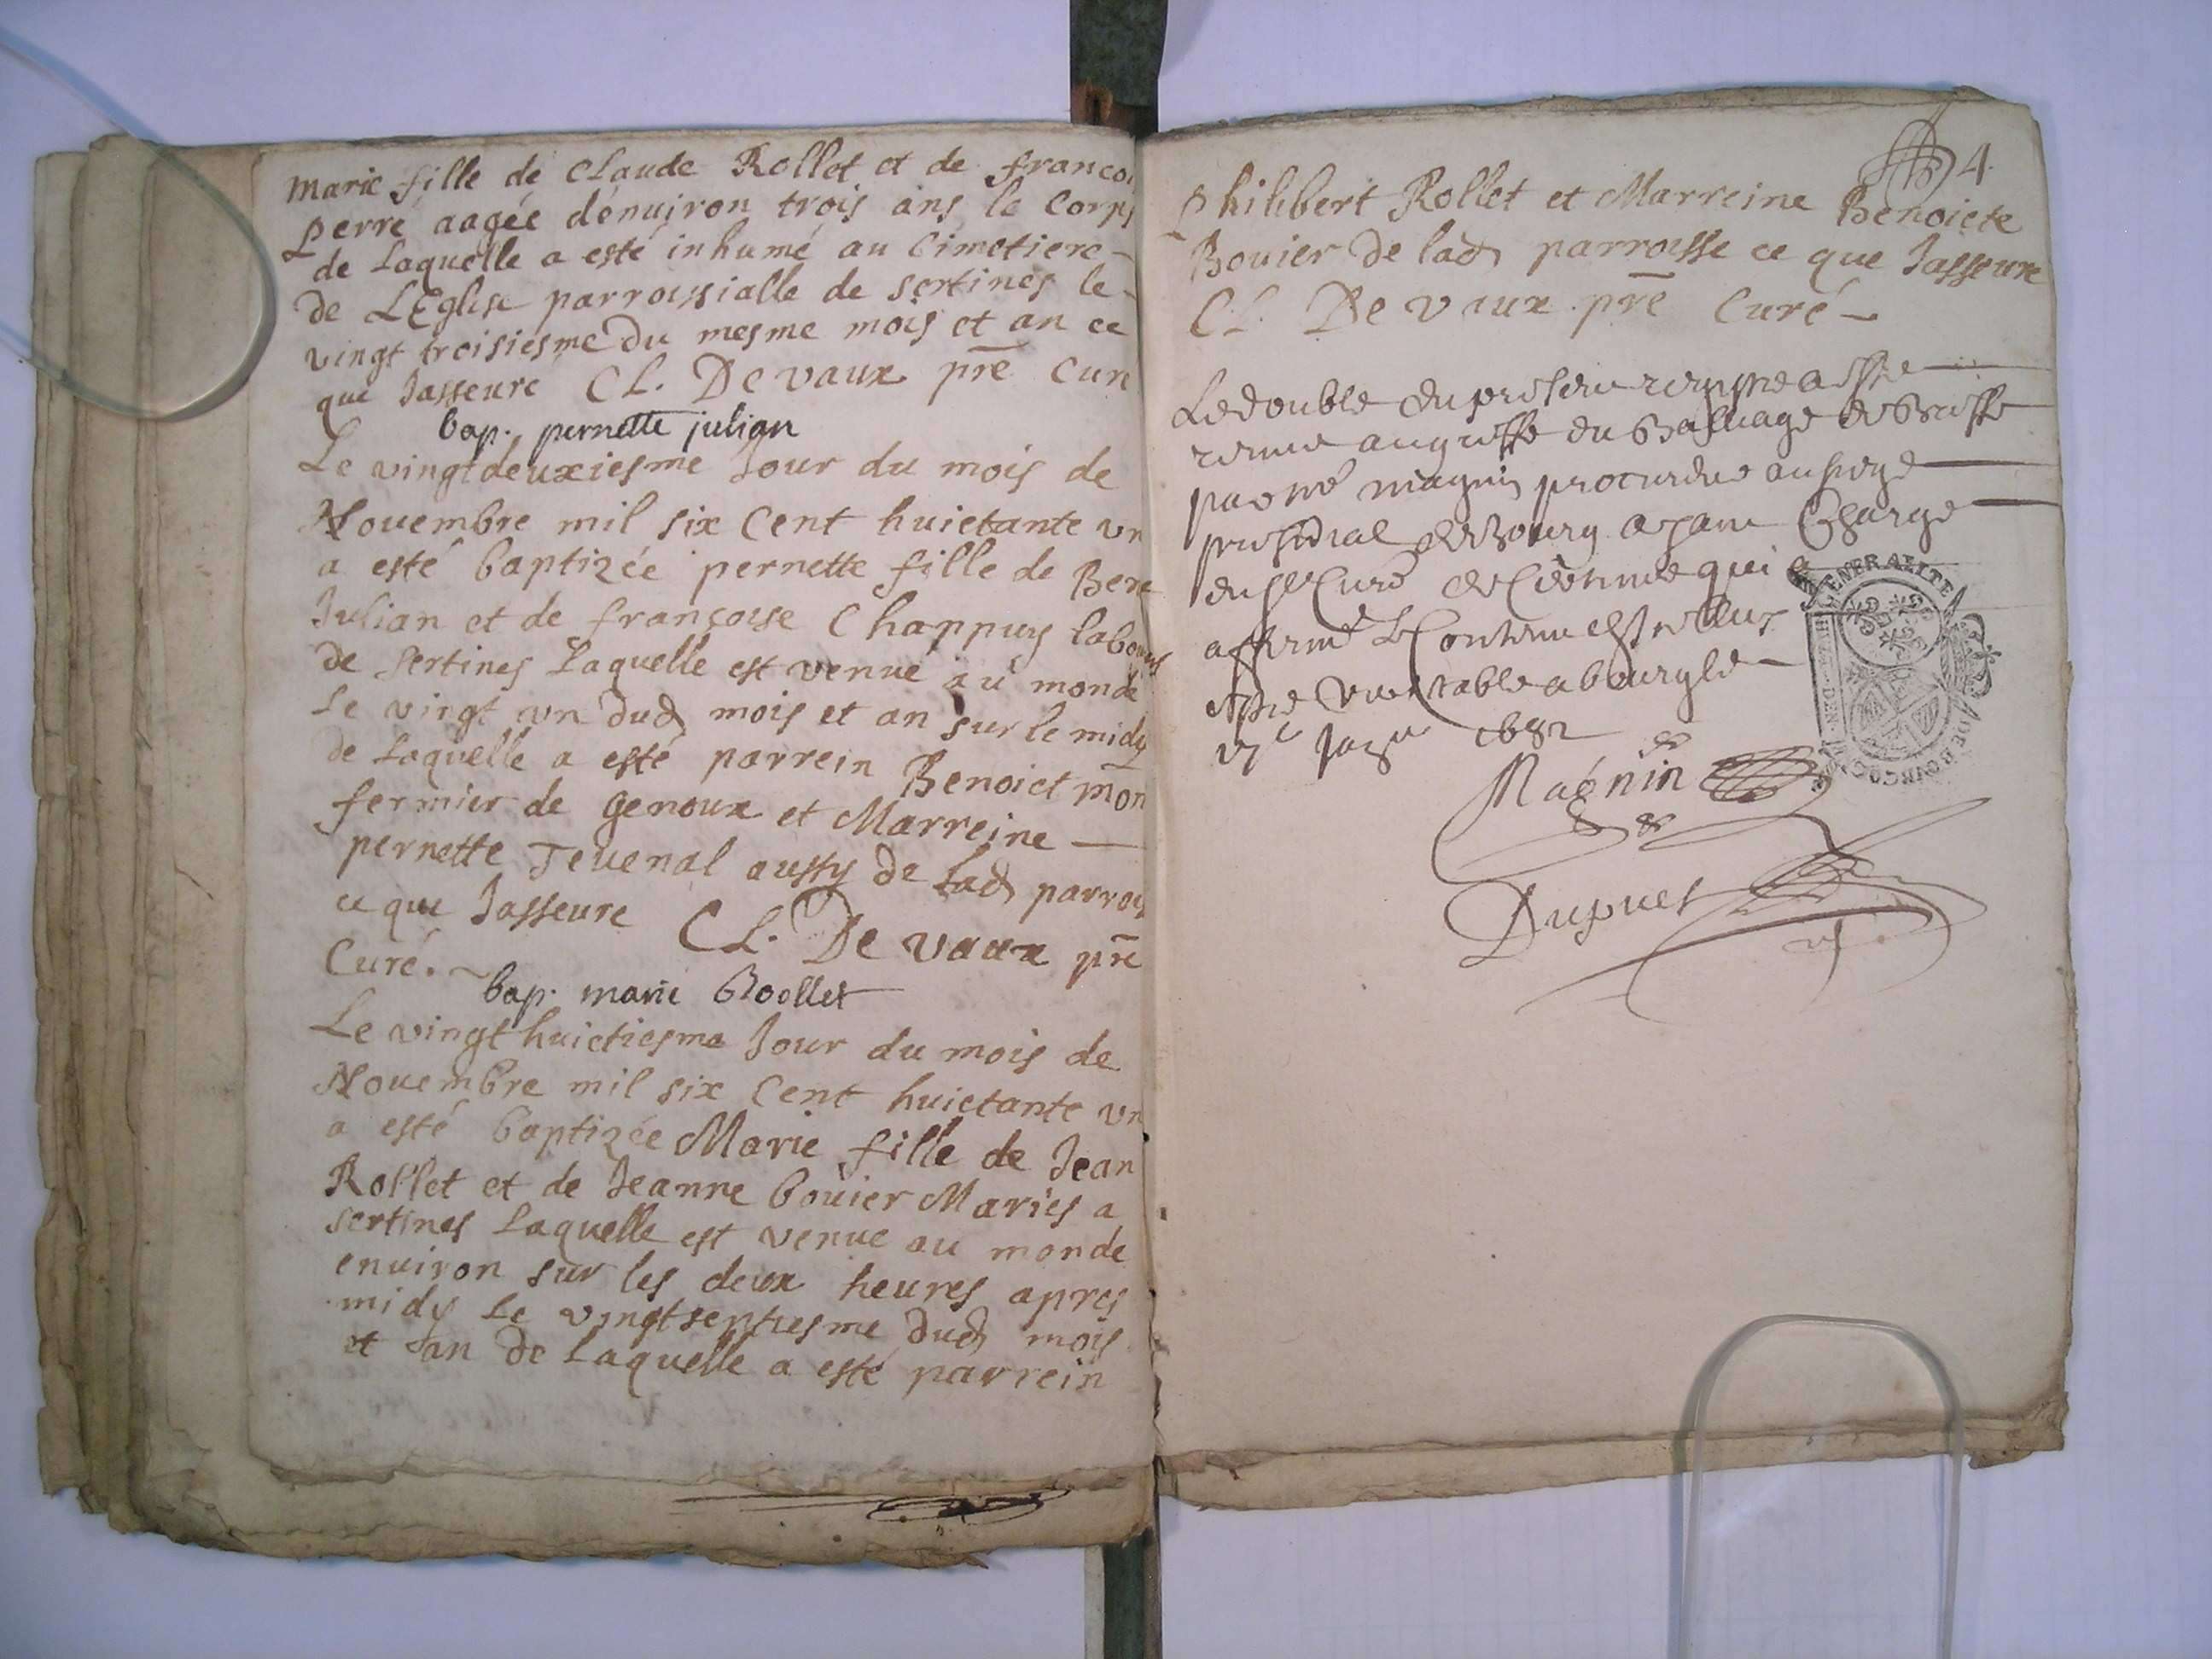 Marie fille de Claude Rollet et de francoi
perre aagée denuiron trois ans le Corps
de Laquelle a esté inhumé au Cimetiere
de LEglise parroissialle de sertines le
vingt troisiesme du mesme mois et an ce
que Jasseure CL. De vaux pre Cur
bap. pernette julian
Le vingtdeuxiesme Jour du mois de
Nouembre mil six Cent huictante vn
a esté baptizée pernette fille de Ben
Julian et de françoise Chappuy labour
de sertines Laquelle est venue au monde
Le vingt vn dud mois et an sur le midy
de Laquelle a esté parrein Benoict mon
fermier de genoux et Marreine
pernette Teuenal aussy de Lad parrois
ce que Jasseure CL. De vaux pre
Curé.
bap. marie Rollet
Le vingthuictiesme Jour du mois de
Nouembre mil six Cent huictante vn
a esté baptizée Marie fille de Jean
Rollet et de Jeanne bouier Mariés a
sertines Laquelle est venue au monde
enuiron sur les deux heures apres
midy Le vingtseptiesme dud mois
et an de Laquelle a esté parrein
4
philibert Rollet et Marreine Benoicte
Bouier de lad parroisse ce que Jasseure
CL. De vaux pre Curé
Le double du present a esté
remis au greffe du Balliage de Bresse
par me magnin procureur au siege
presidial de Bourg ayant Charge
du sr Curé de qui a
affirmé Le Contenu
estre veritable a bourg le
1682
GENERALITE DE BOURGOG
Magnin
Dupuet